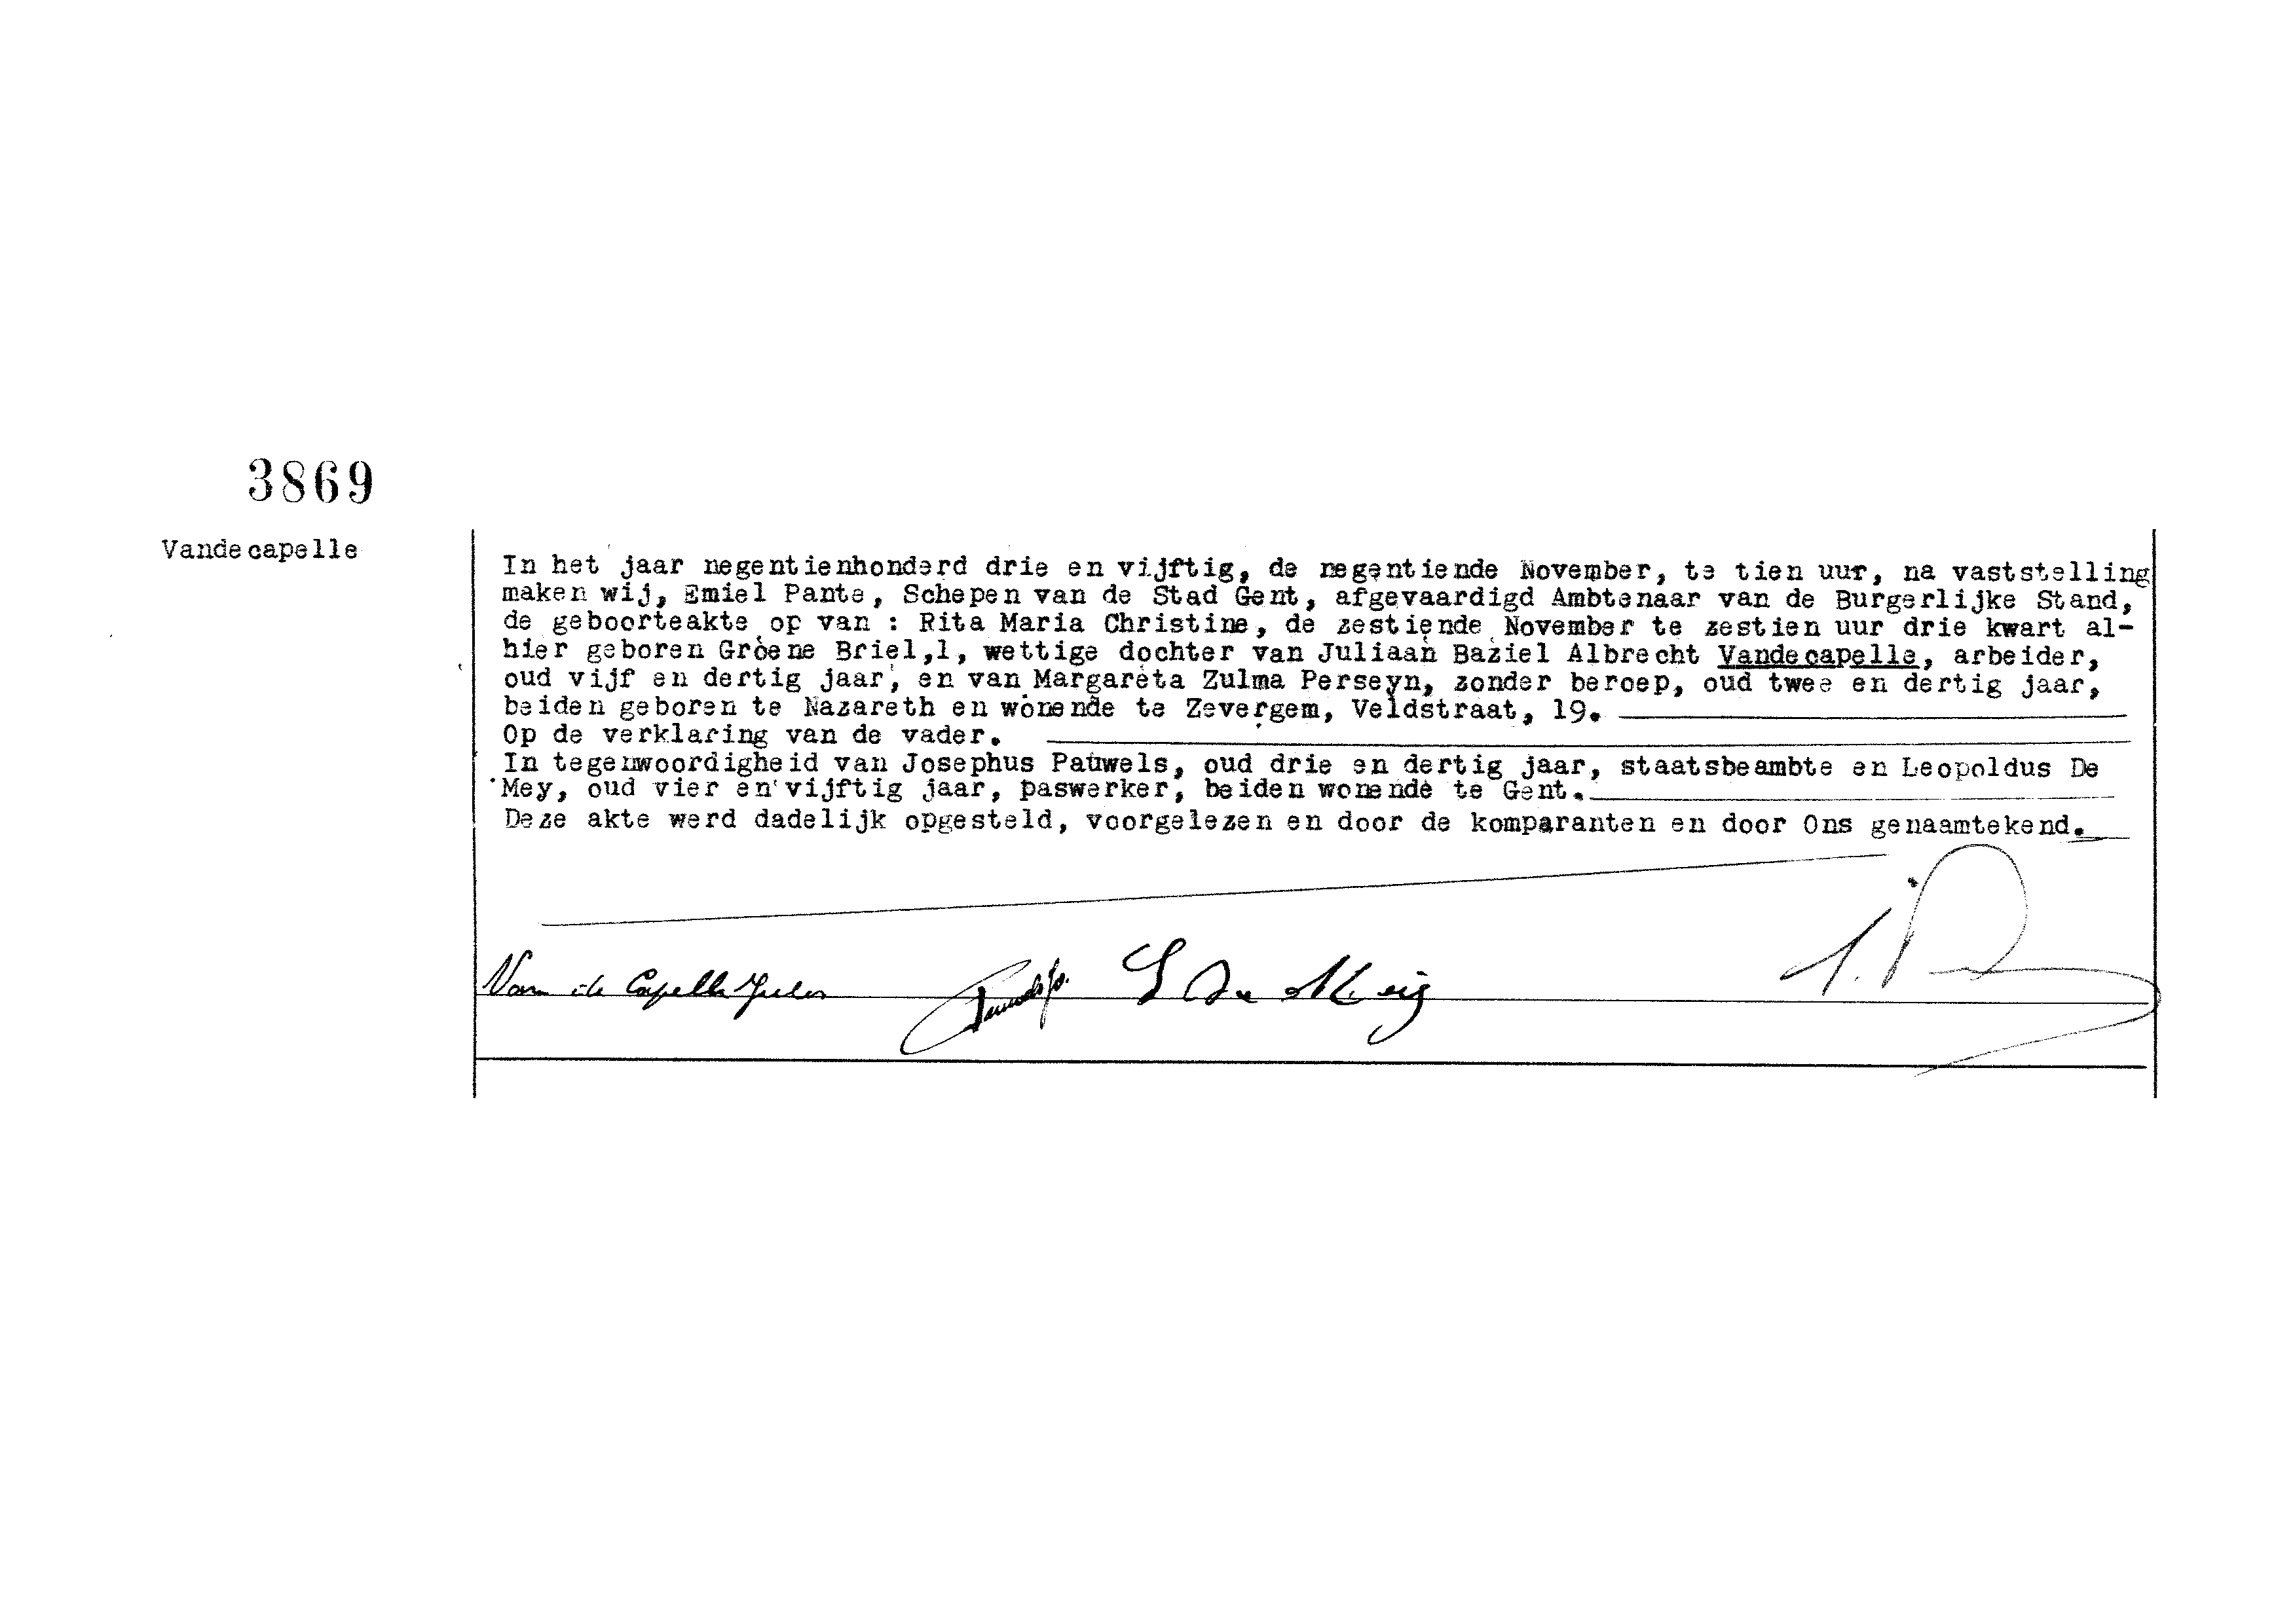 3869
Vandecapelle
In het jaar negentienhonderd drie en vijftig, de negentiende November, te tien uur, na vaststelling
maken wij, Emiel Pante, Schepen van de Stad Gent, afgevaardigd Ambtenaar van de Burgerlijke Stand,
de geboorteakte op van : Rita Maria Christine, de zestiende November te zestien uur drie kwart al-
hier geboren Groene Briel,1, wettige dochter van Juliaan Baziel Albrecht Vandecapelle, arbeider,
oud vijf en dertig jaar, en van Margareta Zulma Perseyn, zonder beroep, oud twee en dertig jaar,
beiden geboren te Nazareth en wonende te Zevergem, Veldstraat, 19.
Op de verklaring van de vader.
In tegenwoordigheid van Josephus Pauwels, oud drie en dertig jaar, staatsbeambte en Leopoldus De
Mey, oud vier en vijftig jaar, paswerker, beiden wonende te Gent.
Deze akte werd dadelijk opgesteld, voorgelezen en door de komparanten en door Ons genaamtekend.
Van de Capelle Jules Pauwels Jo. L De Meij